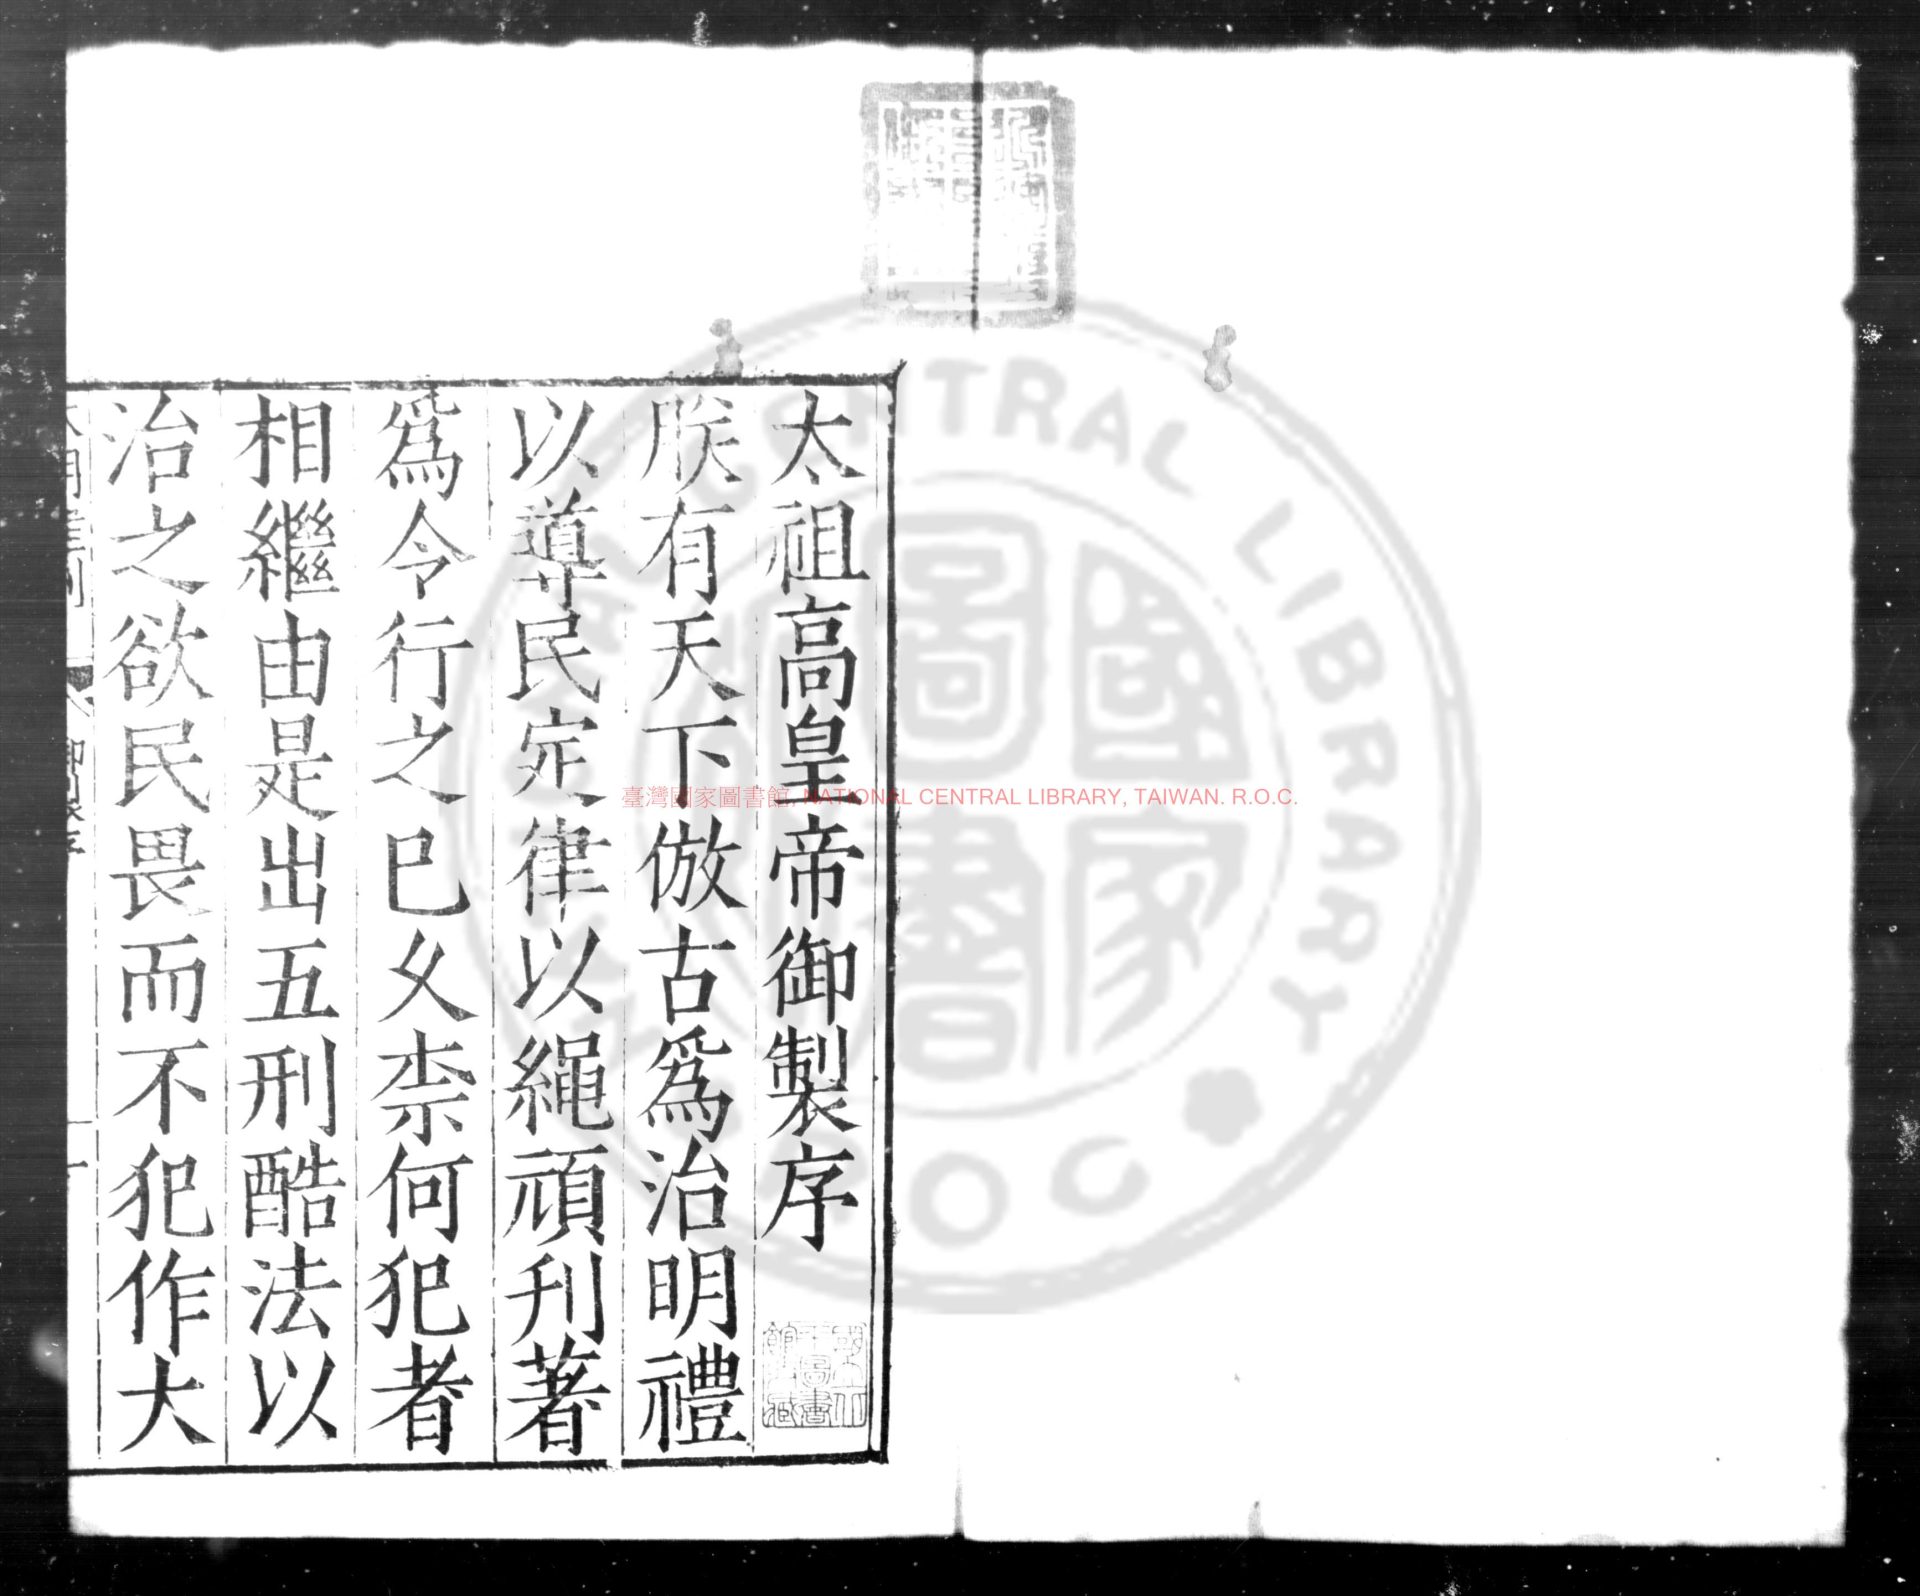 太祖高皇帝御製序
朕有天下倣古爲治明禮
以導民定律以繩頑刋著
爲令行之已久柰何犯者
相繼由是出五刑酷法以
治之欲民畏而不犯作大
臺灣國家圖書館, NATIONAL CENTRAL LIBRARY, TAIWAN. R.O.C.
國家圖書
CENTRAL LIBRARY